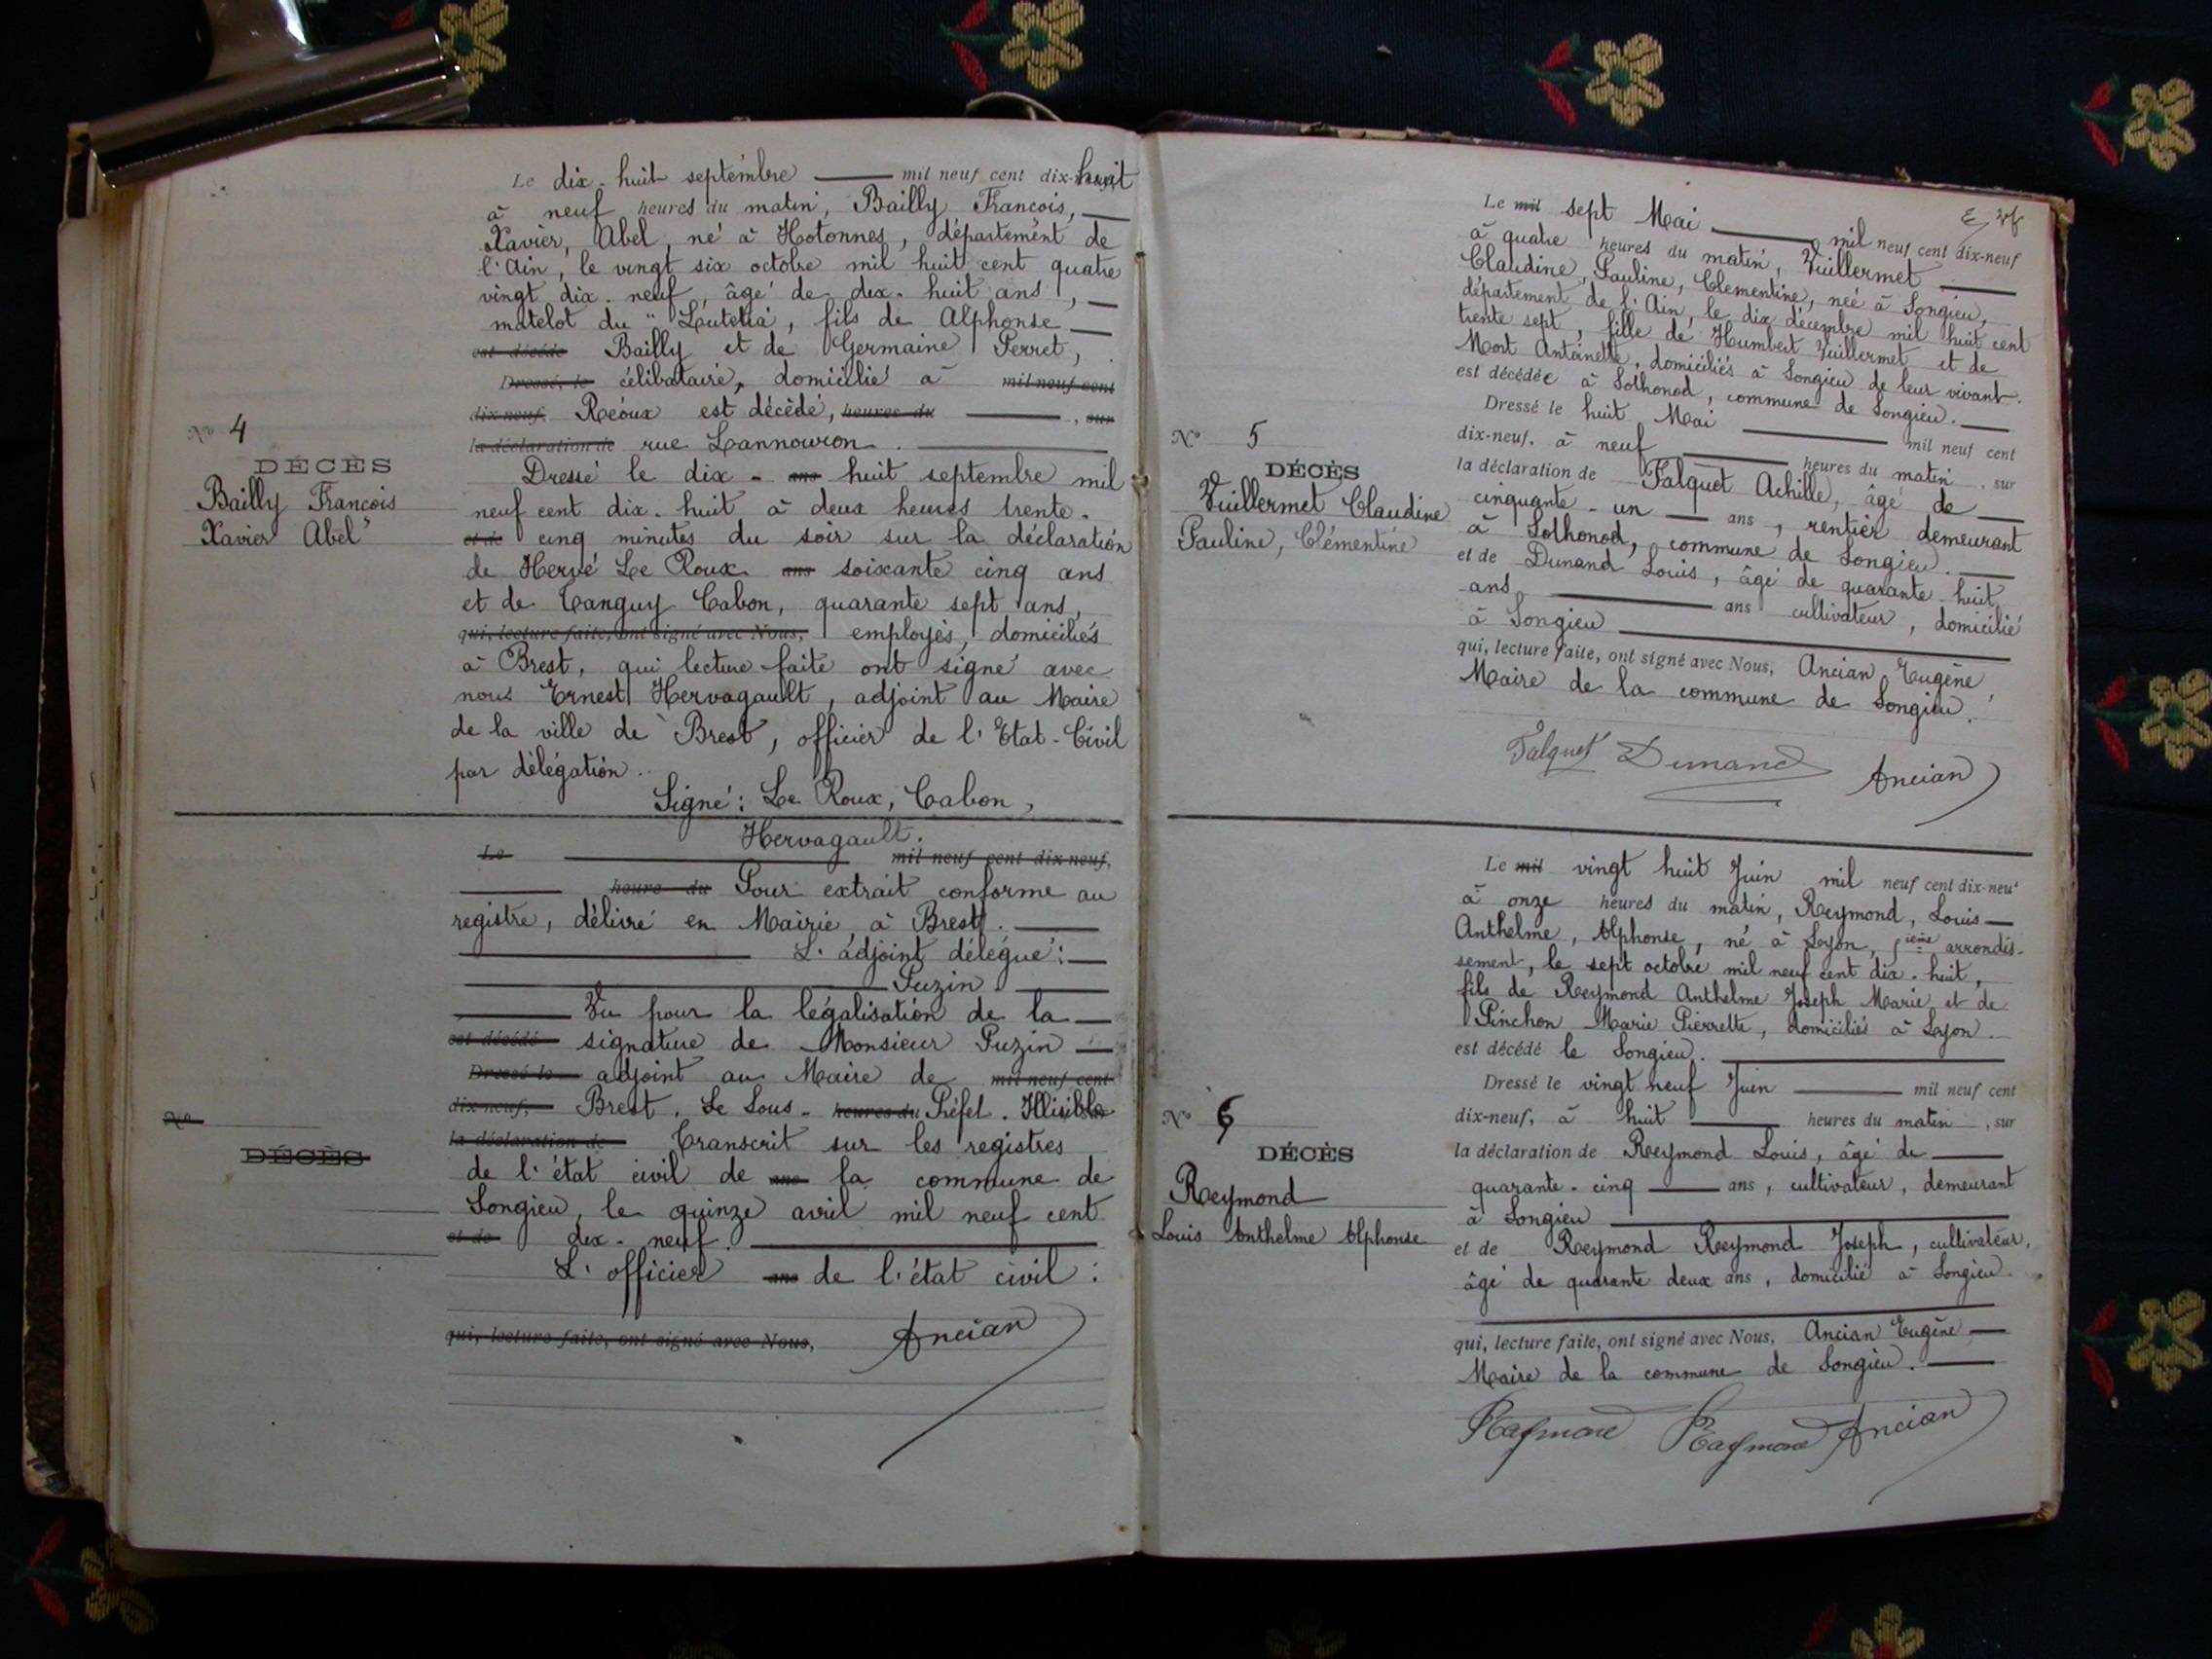 Le dix-huit septembre mil neuf cent dix-huit
à neuf heures du matin, Bailly François,
Xavier, Abel, né à Hotonnes, département de
l'Ain, le vingt six octobre mil huit cent quatre
vingt dix-neuf, âgé de dix-huit ans,
matelot du "Lutetia, fils de Alphonse
est décédé Bailly et de Germaine Perret,
Dressé, le célibataire, domicilié à mil neuf cent
dix-neuf, est décédé, heures du , sur
la déclaration de rue Lannouron.
N° 4
DÉCÈS
Bailly François
Xavier Abel
Dressé le dix - ans huit septembre mil
neuf cent dix-huit à deux heures trente-
et de cinq minutes du soir sur la déclaration
de Hervé Le Roux ans soixante cinq ans
et de Tanguy Cabon, quarante sept ans,
qui, lecture faite, ont signé avec Nous, employés, domiciliés
à Brest, qui lecture faite ont signé avec
nous Ernest Hervagault, adjoint au Maire
de la ville de Brest, officier de l'Etat-Civil
par délégation.
Signé: Le Roux, Cabon,
Hervagault.
Le mil neuf cent dix-neuf,
heure du Pour extrait conforme au
registre, délivré en Mairie à Brest.
L'adjoint délégué:
Puzin
Vu pour la légalisation de la
est décédé signature de Monsieur Puzin
Dressé le adjoint au Maire de mil neuf cent
dix-neuf, Brest. Le Sous- heures du Préfet. Illisible
la déclaration de Transcrit sur les registres
N°
DÉCÈS
de l'état civil de ans la commune de
Songieu, le quinze avril mil neuf cent
et de dix-neuf.
L'officier ans de l'état civil:
qui, lecture faite, ont signé avec Nous, Ancian
Le mil sept Mai mil neuf cent dix-neuf
à quatre heures du matin, Vuillermet
Claudine, Pauline, Clementine, née à Songieu,
département de l'Ain, le dix décembre mil huit cent
trente sept, fille de Humbert Vuillermet et de
Mort Antoinette, domiciliés à Songieu de leur vivant.
est décédée à Sothonod, commune de Songieu.
Dressé le huit Mai mil neuf cent
dix-neuf. à neuf heures du matin, sur
N° 5
DÉCÈS
Vuillermet Claudine
Pauline, Clémentine
la déclaration de Falquet Achille, âgé de
cinquante-un ans, rentier demeurant
à Sothonod, commune de Songieu.
et de Dunand Louis, âgé de quarante-huit
ans ans cultivateur, domicilié
à Songieu
qui, lecture faite, ont signé avec Nous, Ancian Eugène,
Maire de la commune de Songieu.
Falquet Dunand Ancian
Le mil vingt huit Juin mil neuf cent dix-neuf
à onze heures du matin, Reymond, Louis
Anthelme, Alphonse, né à Lyon, arrondis-
sement, le sept octobre mil neuf cent dix-huit,
fils de Reymond Anthelme Joseph Marie et de
Pinchon Marie Pierrette, domiciliés à Lyon.
est décédé le Songieu.
Dressé le vingt neuf Juin mil neuf cent
dix-neuf, à huit heures du matin, sur
N° 6
DÉCÈS
Reymond
Louis Anthelme Alphonse
la déclaration de Reymond Louis, âgé de
quarante-cinq ans, cultivateur, demeurant
à Songieu
et de Reymond Reymond Joseph, cultivateur,
âgé de quarante deux ans, domicilié à Songieu.
qui, lecture faite, ont signé avec Nous, Ancian Eugène
Maire de la commune de Songieu.
Raymond Raymond Ancian